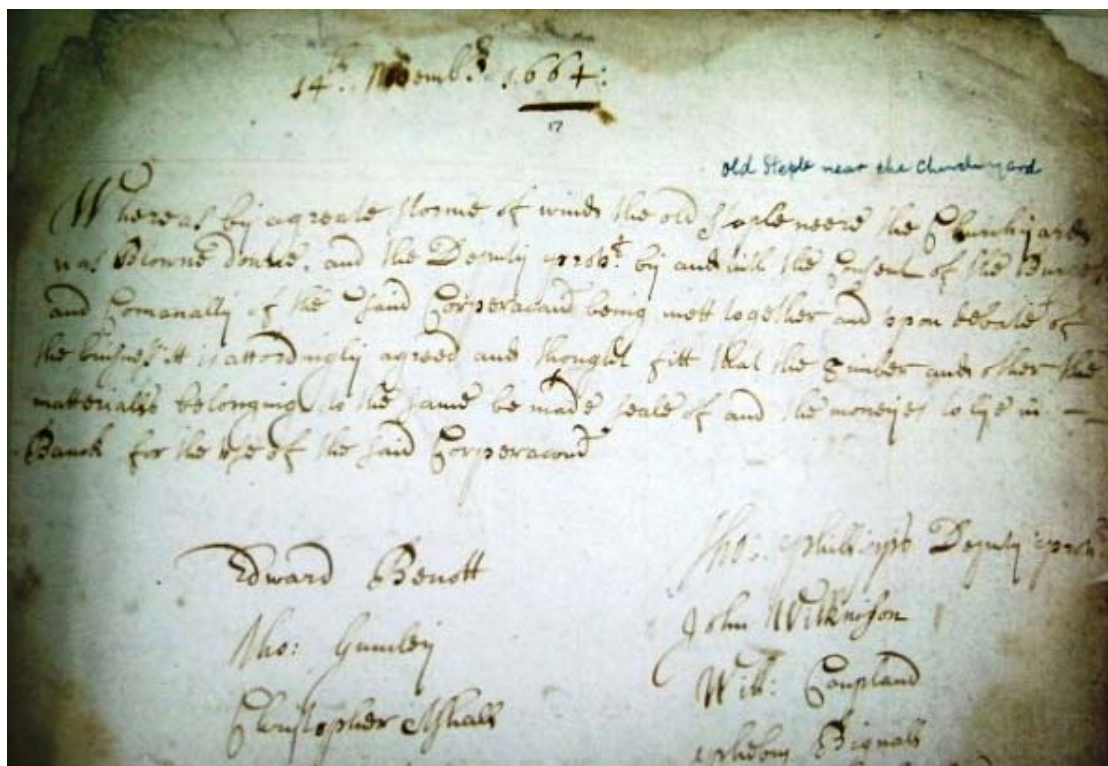 14th Novembr 1664:
17
Old Steple near the Churchyard
Whereas by a greate storme of winde the old steple neere the Churchyard
was Blowne downe, and the Deputy by and with the Consent of the
and Comonalty of the said Corperacon being mett together and upon debate of
the busines it is accordingly agreed and thought fitt that the Timber and other the
matterialls belonging to the same be made seale of and the moneyes to lye in
Banck for the use of the said Corperacon
Edward Benott
Tho: Phillipps Deputy
Tho: Gumley
John Wilkinson
Will: Coupland
Christopher
Bignall